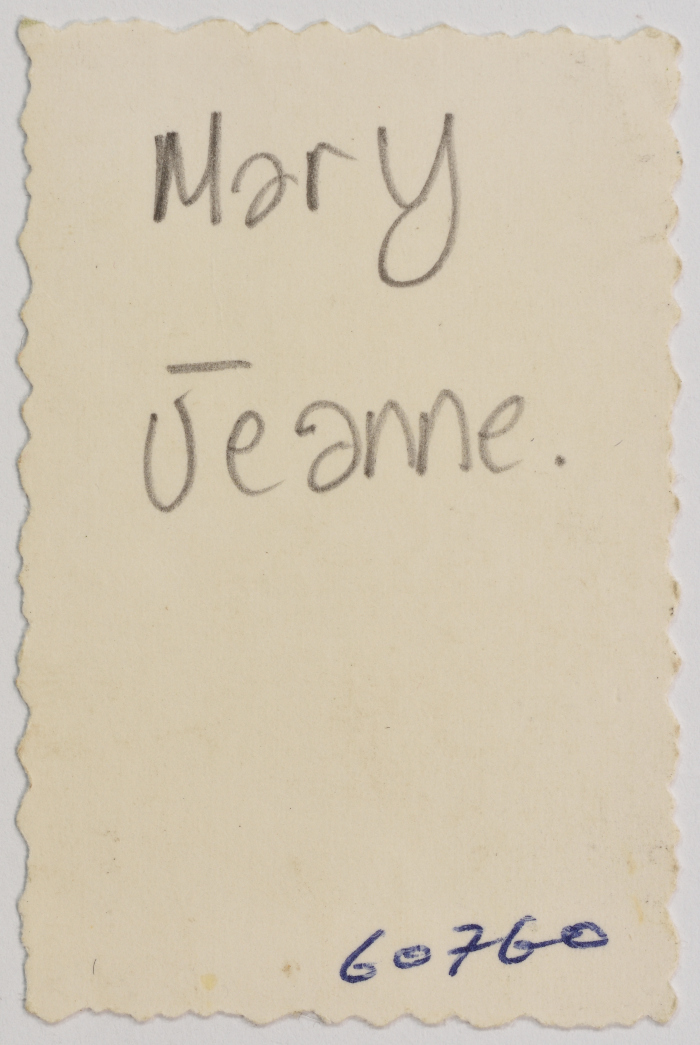 Mary
Jeanne.
60760